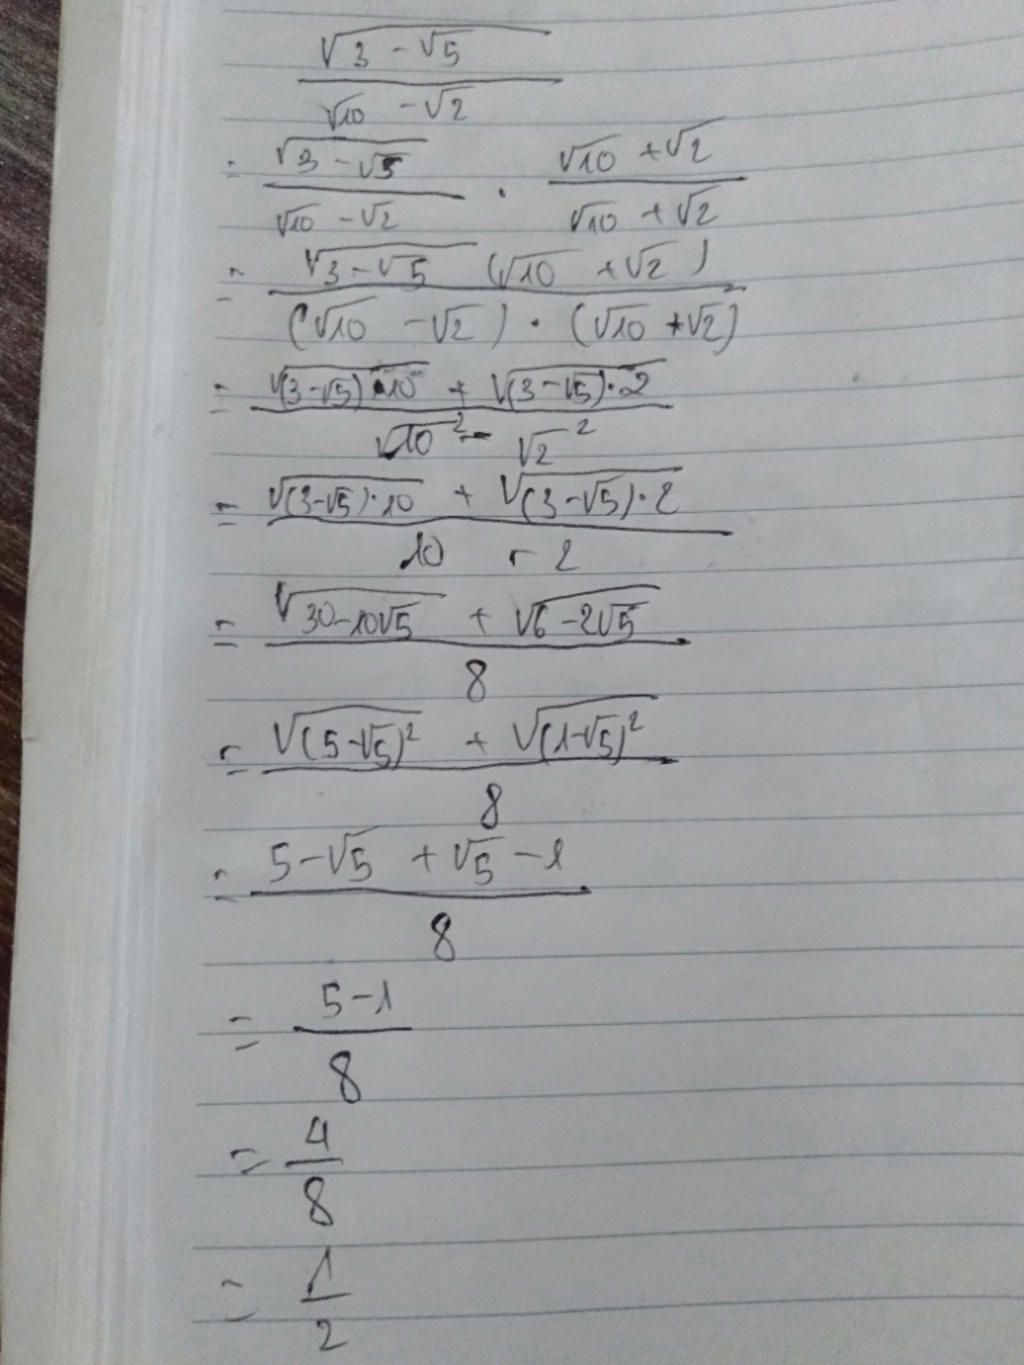 √(3 - √5) / (√10 - √2)
= √(3 - √5) / (√10 - √2) · (√10 + √2) / (√10 + √2)
= √(3 - √5) (√10 + √2) / (√10 - √2) · (√10 + √2)
= (√((3 - √5) · 10) + √((3 - √5) · 2)) / (√10² - √2²)
= (√((3 - √5) · 10) + √((3 - √5) · 2)) / (10 - 2)
= (√(30 - 10√5) + √(6 - 2√5)) / 8
= (√((5 - √5)²) + √((1 - √5)²)) / 8
= (5 - √5 + √5 - 1) / 8
= (5 - 1) / 8
= 4 / 8
= 1 / 2